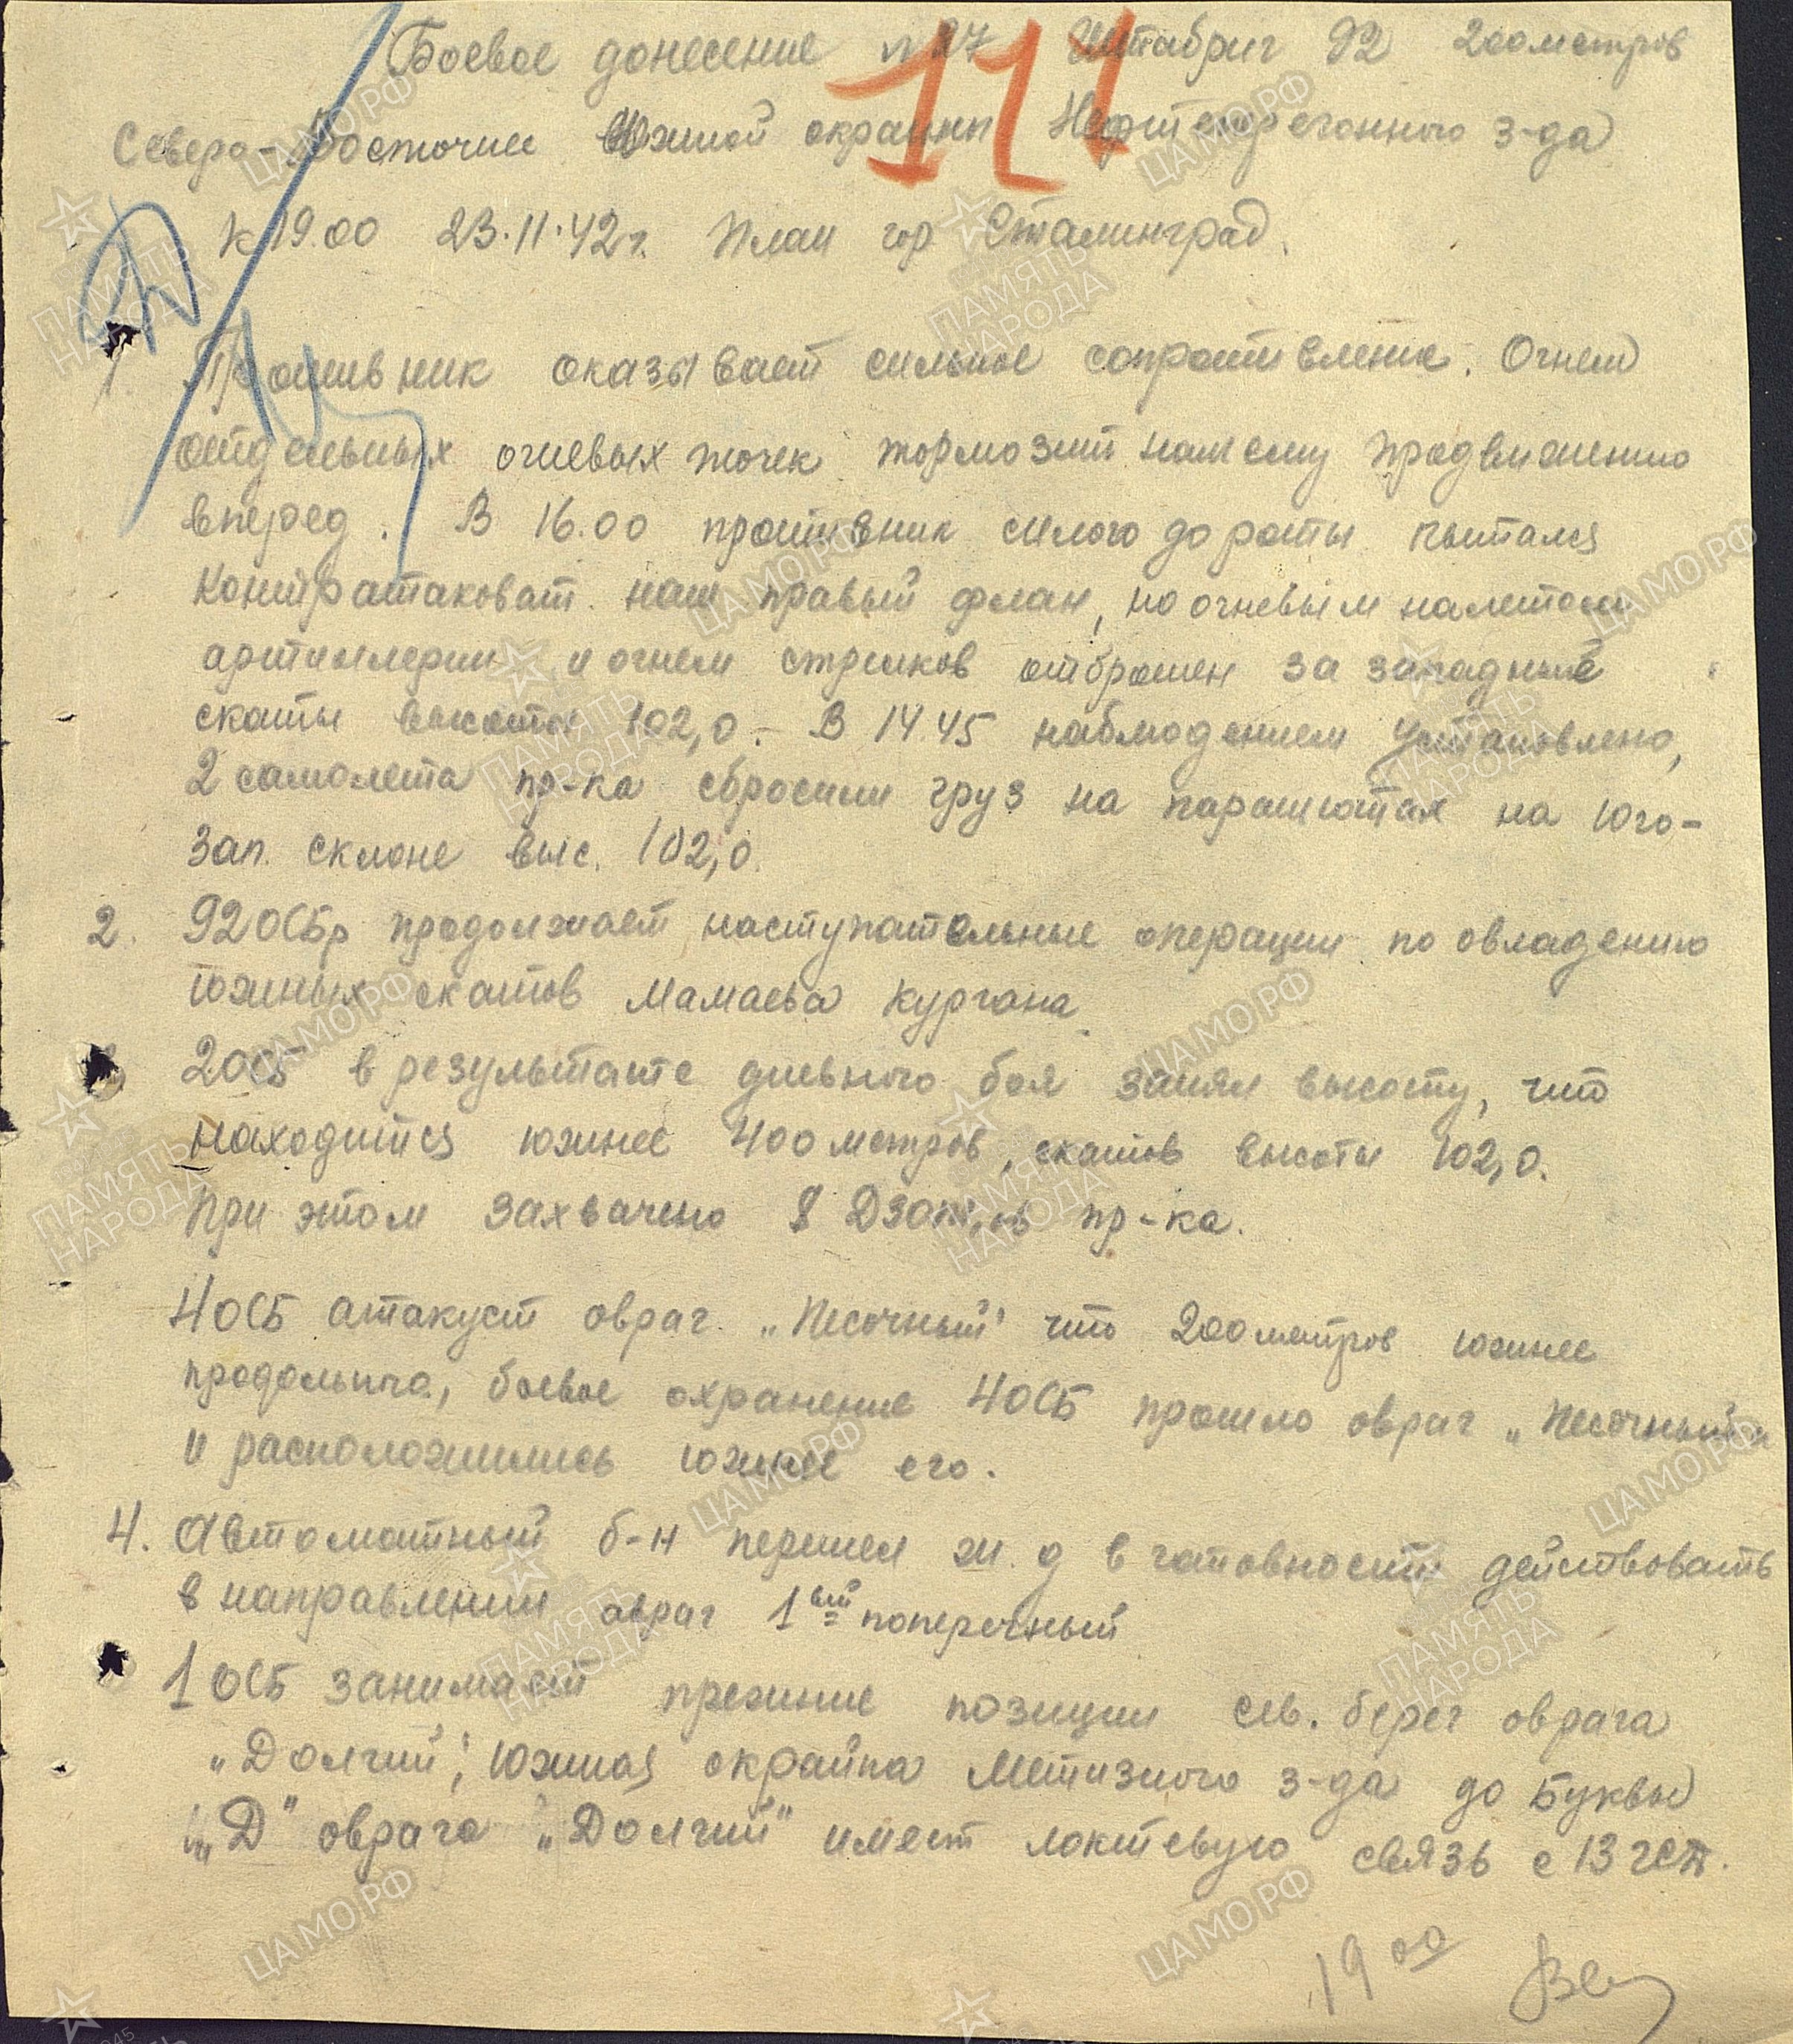 Боевое донесение №27 Штабриг 92 200 метров
Северо-Восточнее Южной окраины Нефтеперегонного з-да
к 19.00 23.11.42г. План гор Сталинград.
111
1. Противник оказывает сильное сопротивление. Огнем
отдельных огневых точек тормозит нашему продвижению
вперед. В 16.00 противник силою до роты пытался
контратаковат. наш правый флан, но огневым налетом
артиллерии и огнем стрелков отброшен за западные
скаты высоты 102,0. В 14.45 наблюдением установлено,
2 самолета пр-ка сбросили груз на парашютах на юго-
зап. склоне выс. 102,0.
2. 92 ОСБр продолжает наступательные операции по овладению
южных скатов Мамаева Кургана
2 ОСБ в результате дневного боя занял высоту, что
находится южнее 400 метров, скатов высоты 102,0.
При этом захвачено 8 Дзотов пр-ка.
4 ОСБ атакует овраг „Песочный" что 200 метров южнее
продольного, боевое охранение 4 ОСБ прошло овраг „Песочный"
и расположились южнее его.
4. Автоматный б-н перешел ж.д в готовности действовать
в направлении овраг 1ый поперечный
1 ОСБ занимает прежние позиции сев. берег оврага
„Долгий", южная окрайна Метизного з-да до Буквы
„Д" оврага „Долгий" имеет локтевую связь с 13 гсд.
19 00